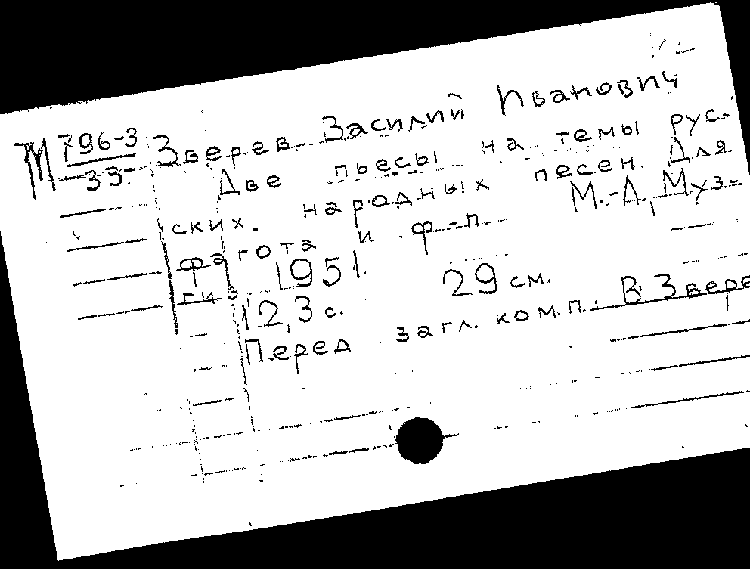 М 796-3
33
Зверев Василий Иванович
Две пьесы на темы рус-
ских народных песен. Для
фагота и ф-п. М.-Л, Муз-
гиз 1951.
12,3 с. 29 см.
Перед загл. комп.: В. Звере